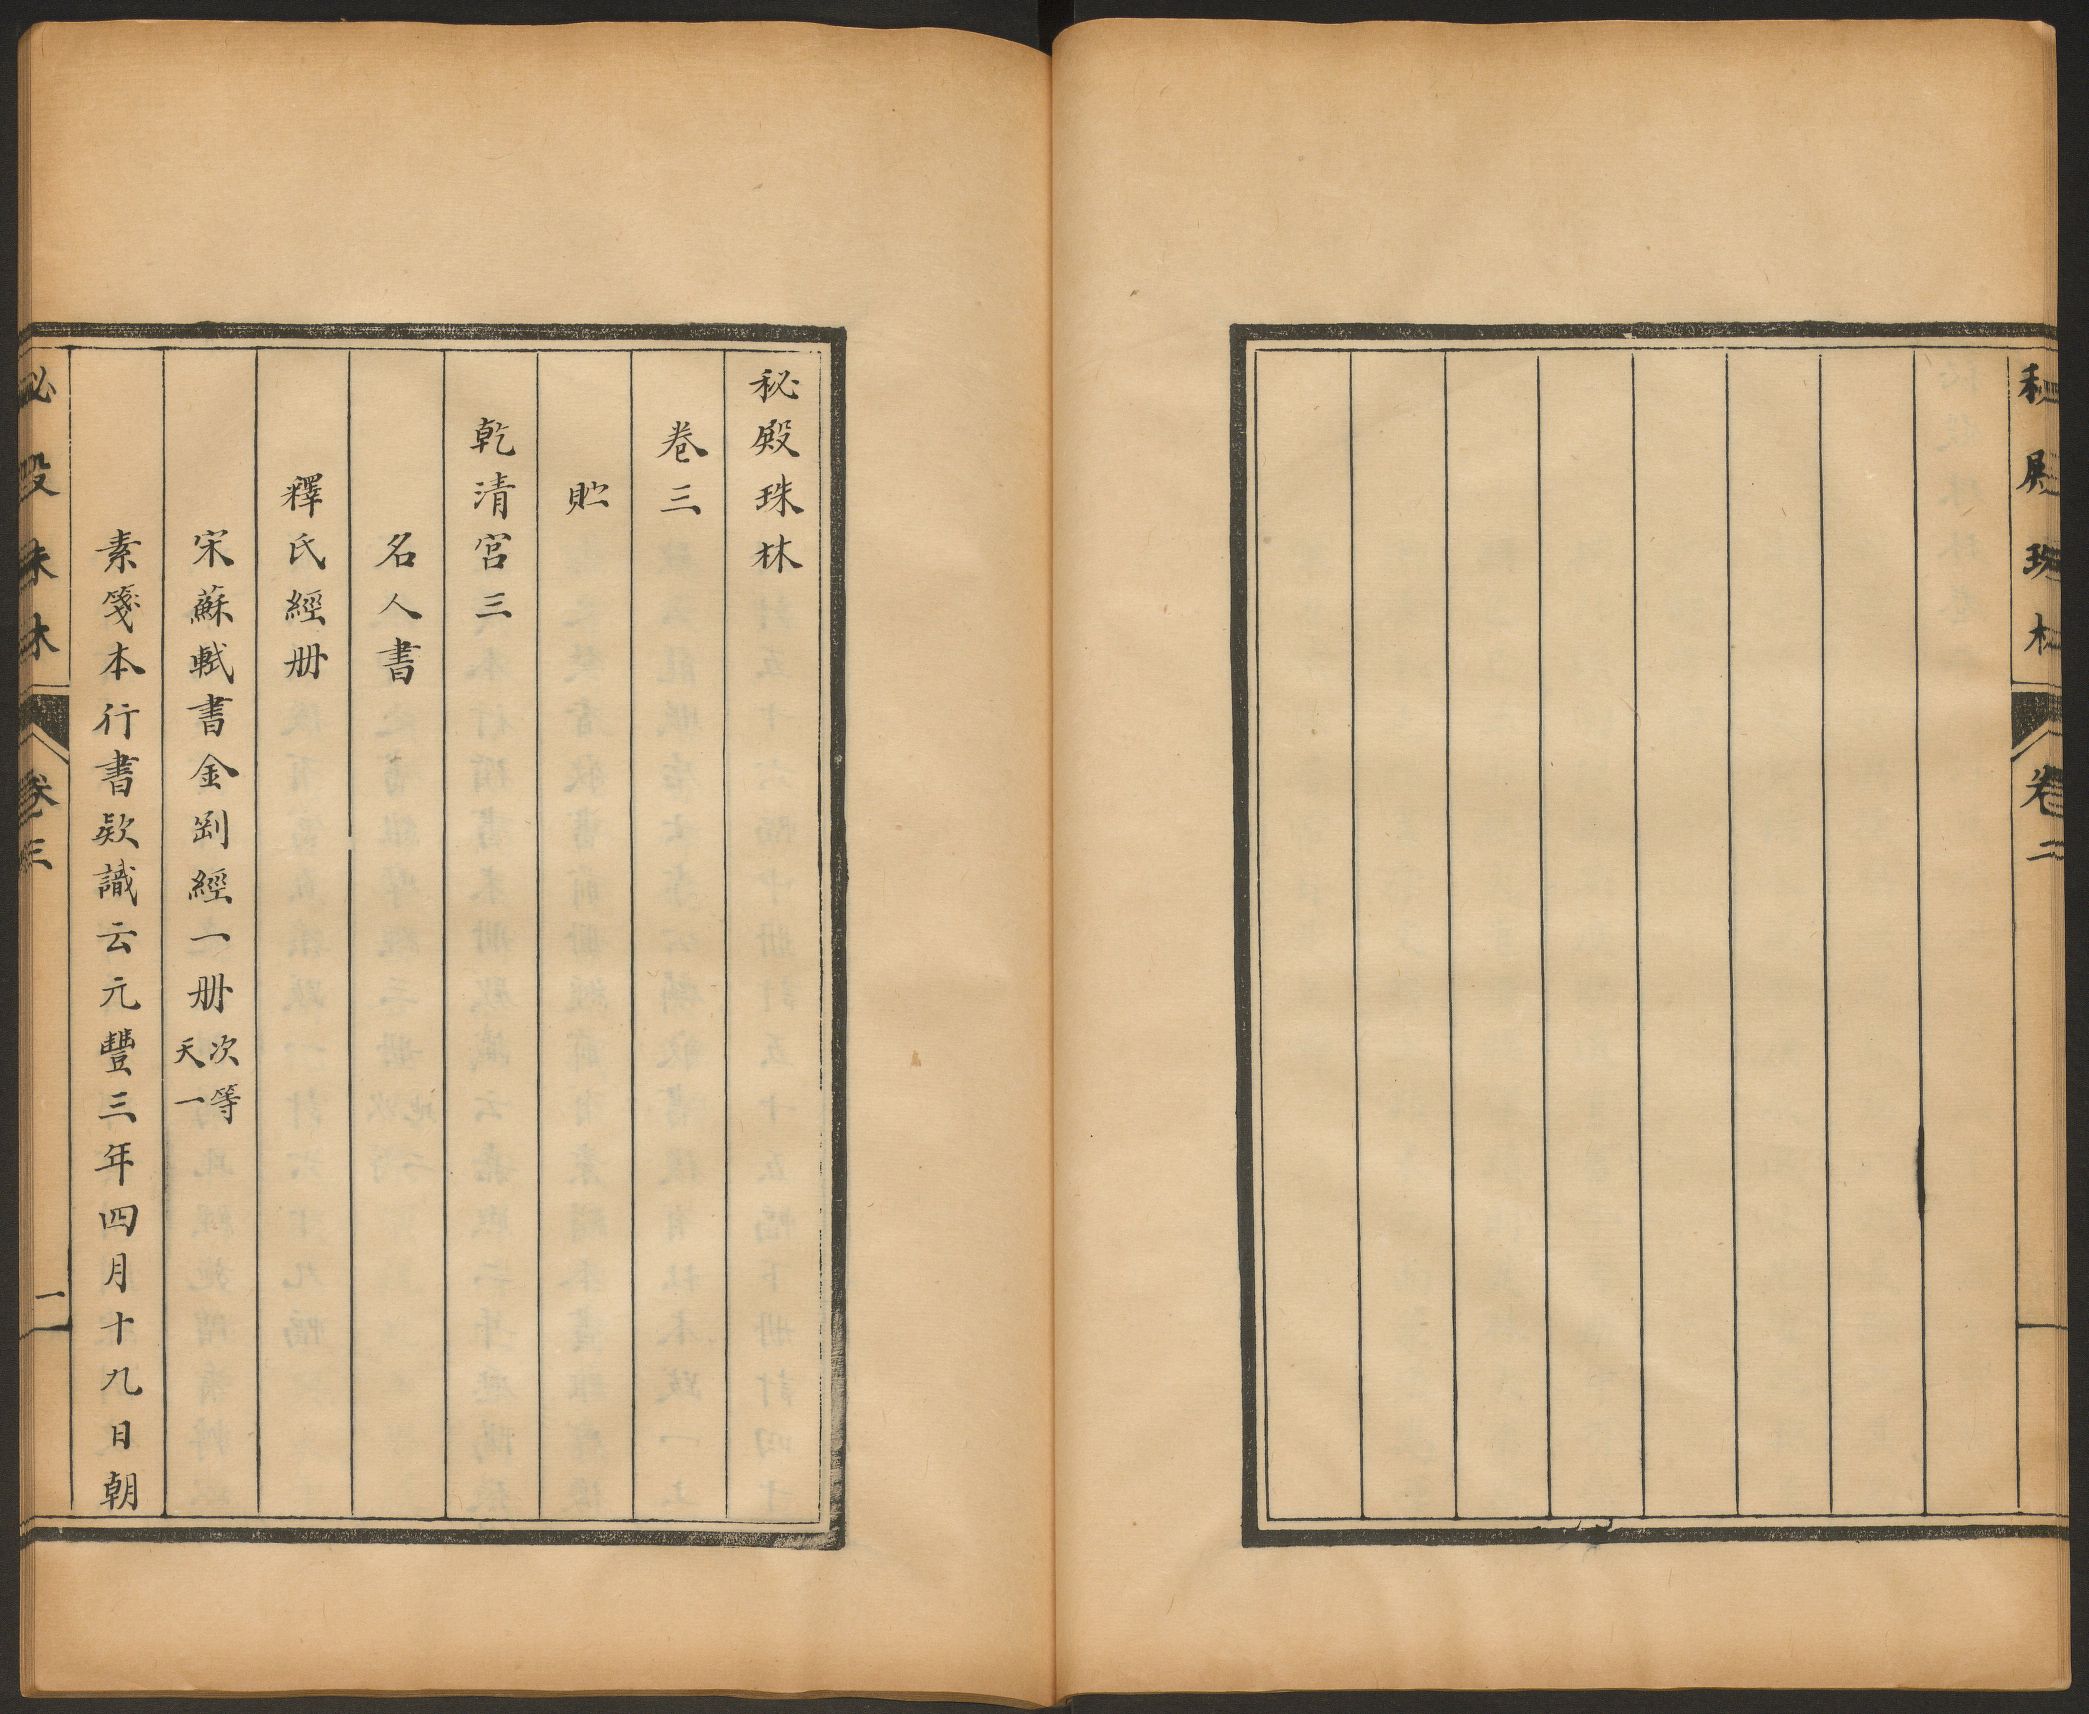 秘殿珠林
卷二
秘殿珠林
卷三
貯
乾清宮三
名人書
釋氏經册
宋蘇軾書金剛經一册次等天一
素箋本行書欵識云元豐三年四月十九日朝
秘殿珠林
卷三
一